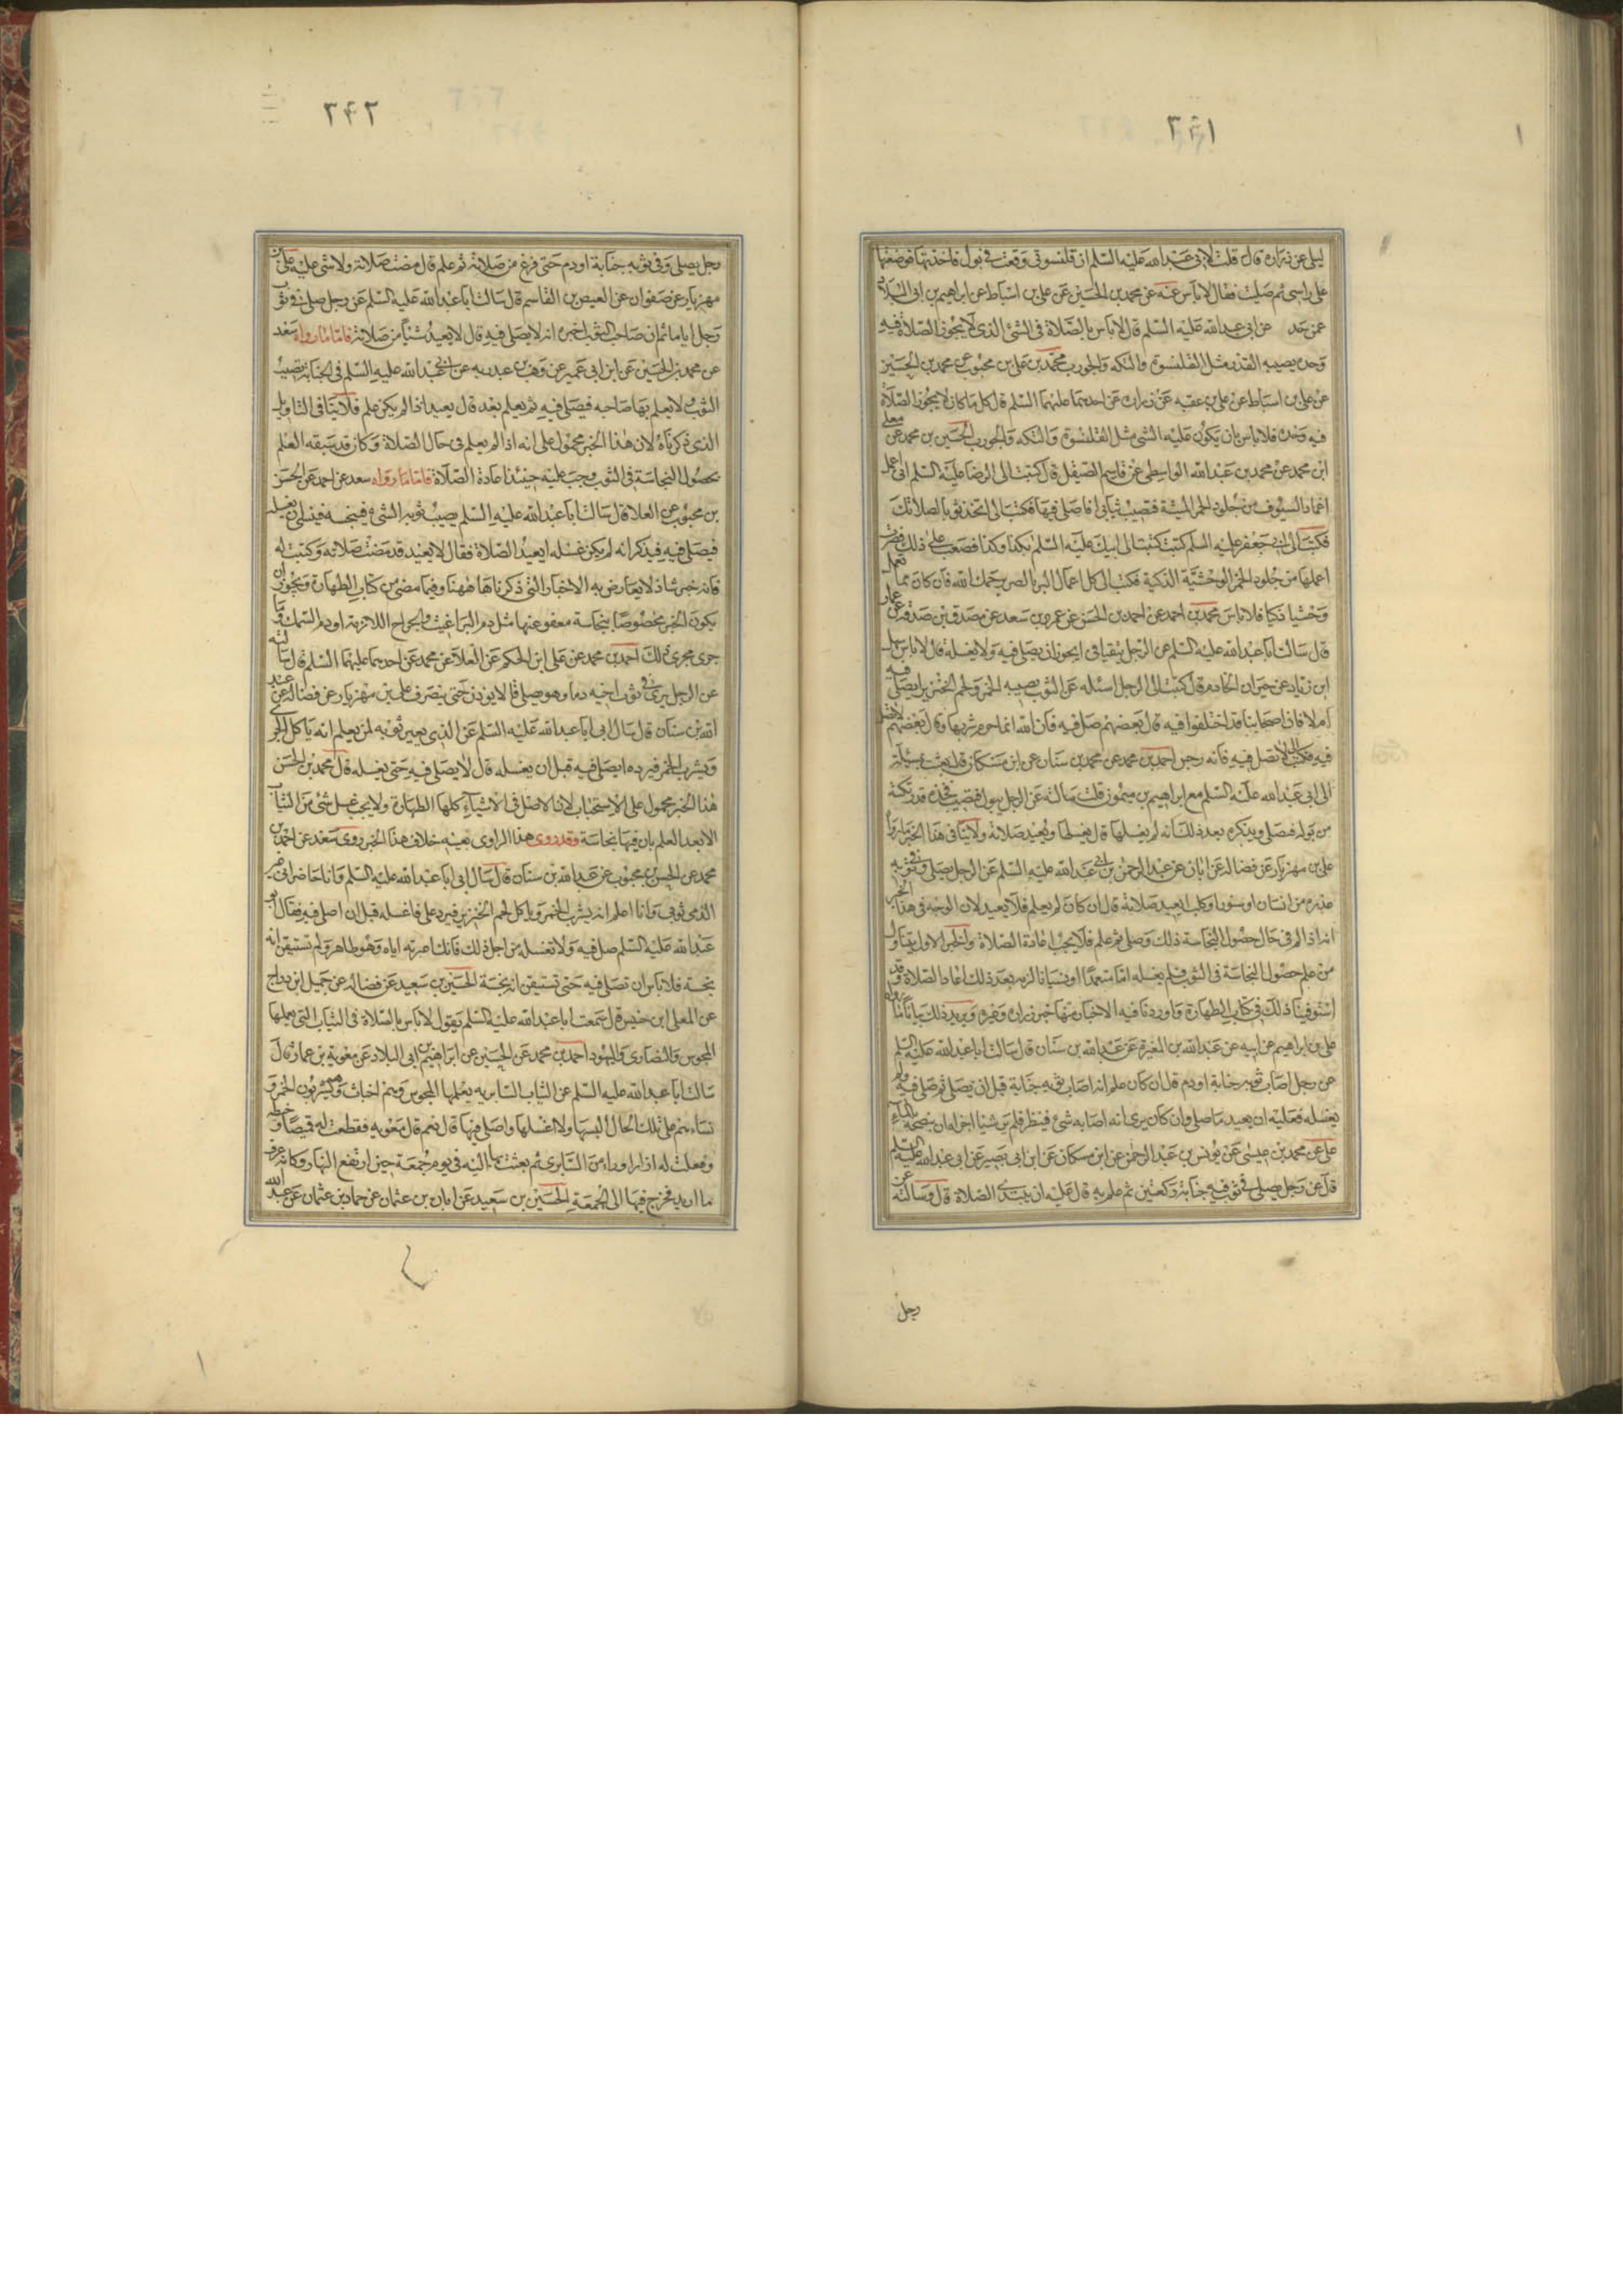 ٢٤١
ليلى عن زراره قال قلت لابى عبد الله عليه السلم ان قلنسوتى وقعت فى بول فاخذتها فوضعتها
على راسى ثم صليت فقال لاباس عنه عن محمد بن الحسين عن على بن اسباط عن ابراهيم بن ابى البلاد
عمن حد عن ابى عبد الله عليه السلم قال لاباس بالصلاة فى الشئ الذى لايجوز الصلاة فيه
وحده يصيبه القذر مثل القلنسوة والتكه والجورب محمد بن على بن محبوب عن محمد بن الحسين
عن على بن اسباط عن على بن عقبه عن زراره عن احدهما عليهما السلم قال كل ما كان لايجوز الصلاة
فيه وحده فلاباس بان يكون عليه الشئ مثل القلنسوة والتكه والجورب الحسين بن محمد عن معلى
ابن محمد عن محمد بن عبد الله الواسطى عن قاسم الصيقل قال كتبت الى الرضا عليه السلم انى اعمل
اغماد السيوف من جلود الحمر الميتة فتصيب ثيابى افاصلى فيها فكتب الى اتخذ ثوبا لصلاتك
فكتبت الى ابى جعفر عليه السلم كنت كتبت الى ابيك عليه السلم بكذا وكذا فصعب على ذلك فصرت
اعملها من جلود الحمر الوحشية الذكية فكتب الى كل اعمال البر بالصبر يرحمك الله فان كان مما تعمل
وحشيا ذكيا فلاباس محمد بن احمد عن احمد بن الحسن عن عمرو بن سعد عن مصدق بن صدقه عن عمار
قال سالت ابا عبد الله عليه السلم عن الرجل يتقيا فى ايجوز ان يصلى فيه ولا يغسله قال لاباس سهل
ابن زياد عن خيران الخادم قال كتبت الى الرجل اسئله عن الثوب يصيبه الخمر ولحم الخنزير ايصلى فيه
ام لا فان اصحابنا قد اختلفوا فيه قال بعضهم صل فيه فان الله انما حرم شربها وقال بعضهم لاتصل
فيه فكتب لاتصل فيه فانه رجس احمد بن محمد عن محمد بن سنان عن ابن مسكان قال بعثت بمسئلة
الى ابى عبد الله عليه السلم مع ابراهيم بن ميمون قلت سالته عن الرجل يبول فتصيب فخذه قدر نكتة
من بوله فيصلى ويذكره بعد ذلك انه لم يغسلها قال يغسلها ويعيد صلاته ولاينافى هذا الخبر مارواه
على بن مهزيار عن فضاله عن ابان عن عبد الرحمن بن ابى عبد الله عليه السلم عن الرجل يصلى وفى ثوبه
عذره من انسان او سنور او كلب ايعيد صلاته قال ان كان لم يعلم فلا يعيد لان الوجه فى هذا الخبر
انه اذا لم فى حال حصول النجاسة ذلك وصلى ثم علم فلا يجب اعادة الصلاة والخبر الاول يتناول
من علم حصول النجاسة فى الثوب فلم يغسله اما متعمدا او نسيانا لزمه بعد ذلك اعادا الصلاة وقد
استوفينا ذلك فى كتاب الطهارة واوردنا فيه الاخبار منها خبر زراره وغيره ويزيد ذلك بيانا مارواه
على بن ابراهيم عن ابيه عن عبد الله بن المغيرة عن عبد الله بن سنان قال سالت ابا عبد الله عليه السلم
عن رجل اصاب ثوبه جنابة او دم قال ان كان علم انه اصاب ثوبه جنابة قبل ان يصلى ثم صلى فيه ولم
يغسله فعليه ان يعيد ما صلى وان كان يرى انه اصابه شئ فينظر فلم ير شيئا اجزاه ان ينضحه بالماء
على عن محمد بن عيسى عن يونس بن عبد الرحمن عن ابن مسكان عن ابى بصير عن ابى عبد الله عليه السلم
قال عن رجل يصلى فى ثوب فيه جنابة ركعتين ثم علم به قال عليه ان يبتدى الصلاة قال وسالته عن
رجل
٢٤٢
رجل يصلى وفى ثوبه جنابة او دم حتى فرغ من صلاته ثم علم قال مضت صلاته ولاشئ عليه على بن
مهزيار عن صفوان عن العيص بن القاسم قال سالت ابا عبد الله عليه السلم عن رجل صلى فى ثوب
رجل اياما ثم ان صاحب الثوب اخبره انه لايصلى فيه قال لايعيد شيئا من صلاته فاما مارواه سعد
عن محمد بن الحسين عن ابن ابى عمير عن وهب بن عبد ربه عن ابى عبد الله عليه السلم فى الجنابة تصيب
الثوب ولايعلم بها صاحبه فيصلى فيه ثم يعلم بعد قال يعيد اذا لم يكن علم فلا ينافى التاويل
الذى ذكرناه لان هذا الخبر محمول على انه اذا لم يعلم فى حال الصلاة وكان قد سبقه العلم
بحصول النجاسة فى الثوب وجب عليه حينئذ اعادة الصلاة فاما مارواه سعد عن احمد عن الحسن
بن محبوب عن العلا قال سالت ابا عبد الله عليه السلم يصيب ثوبه الشئ فينجسه فينسى ان يغسله
فيصلى فيه فيذكر انه لم يكن غسله ايعيد الصلاة فقال لايعيد قد مضت صلاته وكتبت له
فانه خبر شاذ لايعارض به الاخبار التى ذكرناها هاهنا وفيما مضى من كتاب الطهارة ويجوز ان
يكون الخبر مخصوصا بنجاسة معفو عنها مثل دم البراغيث والجراح اللازمة او دم السمك وما
جرى مجرى ذلك احمد بن محمد عن على ابن الحكم عن العلا عن محمد عن احدهما عليهما السلم قال سالته
عن الرجل يرى فى ثوب اخيه دما وهو يصلى قال لايوذن حتى ينصرف على بن مهزيار عن فضاله عن عبد
الله بن سنان قال سال ابى ابا عبد الله عليه السلم عن الذى يعير ثوبه لمن يعلم انه ياكل الجرى
ويشرب الخمر فيرده ايصلى فيه قبل ان يغسله قال لايصلى فيه حتى يغسله قال محمد بن الحسن
هذا الخبر محمول على الاستحباب لان الاصل فى الاشياء كلها الطهارة ولايجب غسل شئ من الثياب
الا بعد العلم بان فيها نجاسة وقد روى هذا الراوى بعينه خلاف هذا الخبر روى سعد عن احمد بن
محمد عن الحسن بن محبوب عن عبد الله بن سنان قال سال ابى ابا عبد الله عليه السلم وانا حاضر انى اعير
الذمى ثوبى وانا اعلم انه يشرب الخمر وياكل لحم الخنزير فيرد على فاغسله قبل ان اصلى فيه فقال ابو
عبد الله عليه السلم صل فيه ولا تغسله من اجل ذلك فانك اعرته اياه وهو طاهر ولم تستيقن انه
نجسه فلاباس ان تصلى فيه حتى تستيقن انه نجسة الحسين بن سعيد عن فضاله عن جميل ابن دراج
عن المعلى ابن خنيس قال سمعت ابا عبد الله عليه السلم يقول لاباس بالصلاة فى الثياب التى يعملها
المجوس والنصارى واليهود احمد بن محمد عن الحسين عن ابراهيم بن ابى البلاد عن معويه بن عمار قال
سالت ابا عبد الله عليه السلم عن الثياب السابريه يعملها المجوس وهم اخباث وهم يشربون الخمر و
نساءهم على تلك الحال البسها ولا اغسلها واصلى فيها قال نعم قال معويه فقطعت له قميصا وخطته
وفعلت له ازارا ورداء من السابرى ثم بعثت بها اليه فى يوم جمعة حين ارتفع النهار وكانه عرف
ما اريد فخرج فيها الى الجمعة الحسين بن سعيد عن ابان بن عثمان عن حماد بن عثمان عن عبيد الله